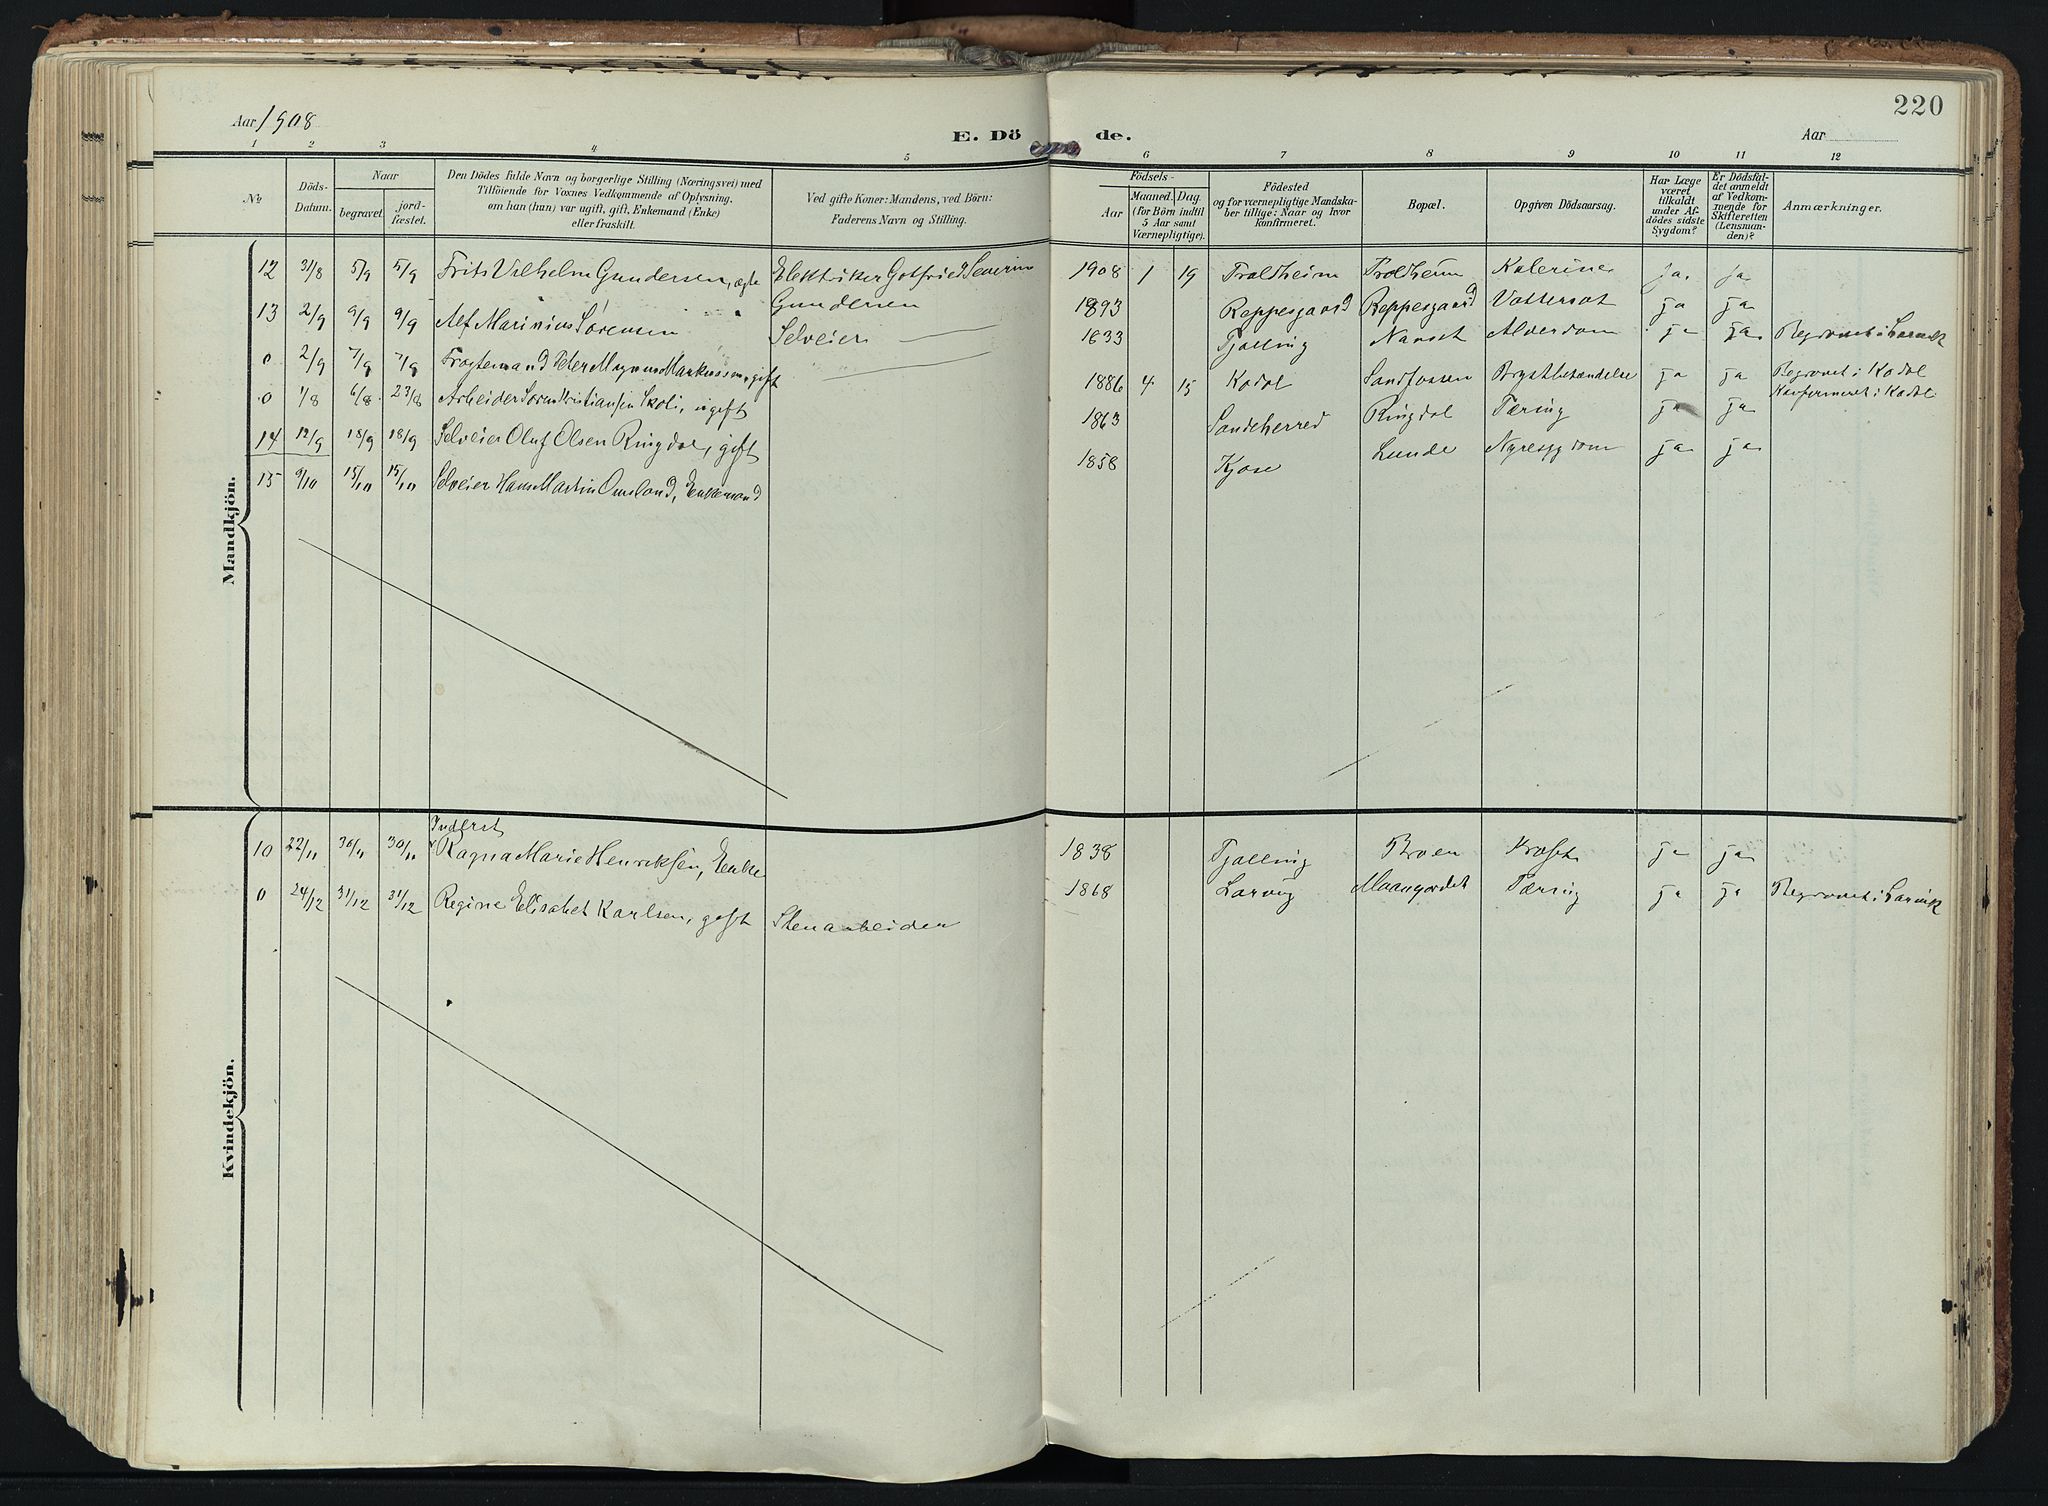 220
Aar 1908
E. Dö de.
Aar
1 2 3 4 5 6 7 8 9 10 11 12
No.
Döds-Datum.
Naar
begravet.
jord-fæstet.
Den Dödes fulde Navn og borgerlige Stilling (Næringsvei) med
Tilföiende for Voxnes Vedkommende af Oplysning,
om han (hun) var ugift, gift, Enkemand (Enke)
eller fraskilt.
Ved gifte Koner: Mandens, ved Börn:
Faderens Navn og Stilling.
Födsels-
Aar
Maaned. Dag.
(for Börn indtil
5 Aar samt
Værnepligtige).
Födested
og for værnepligtige Mandska-
ber tillige: Naar og hvor
konfirmeret.
Bopæl.
Opgiven Dödsaarsag.
Har Læge
været
tilkaldt
under Af-
dödes sidste
Sygdom?
Er Dödsfal-
det anmeldt
af Vedkom-
mende for
Skifteretten
(Lensman-
den)?
Anmærkninger.
Mandkjön.
12 31/8 5/9 5/9 Frits Vilhelm Gundersen, ægte Elektriker Gotfried Severin 1908 1 19 Troldheim Troldheim Kolerine ja ja
Gundersen
13 2/9 9/9 9/9 Alf Marinius Sørensen Selveier 1893 Reppesgaard Reppesgaard Vattersot ja ja
0 2/9 7/9 7/9 Peter Magnus Markussen, gift 1833 Tjølling Nanset Alderdom ja ja Begravet i Larvik
0 1/8 6/8 23/8 Arbeider Søren Kristiansen Skoli, ugift 1886 4 15 Kodal Sandfossen Brystbetændelse ja ja Begravet i Kodal
Konfirmeret i Kodal
14 12/9 18/9 18/9 Selveier Oluf Olsen Ringdal, gift 1863 Sandeherred Ringdal Tæring ja ja
15 9/10 15/10 15/10 Selveier Hans Martin Omsland, Enkemand 1858 Kjose Lunde Nyresygdom ja ja
Kvindekjön.
Inderst
10 22/11 30/11 30/11 Ragna Marie Henriksen, Enke 1838 Tjølling Broen Kræft ja ja
0 24/12 31/12 31/12 Regine Elisabet Karlsen, gift Stenarbeider 1868 Larvig Maangordet Tæring ja ja Begravet i Larvik